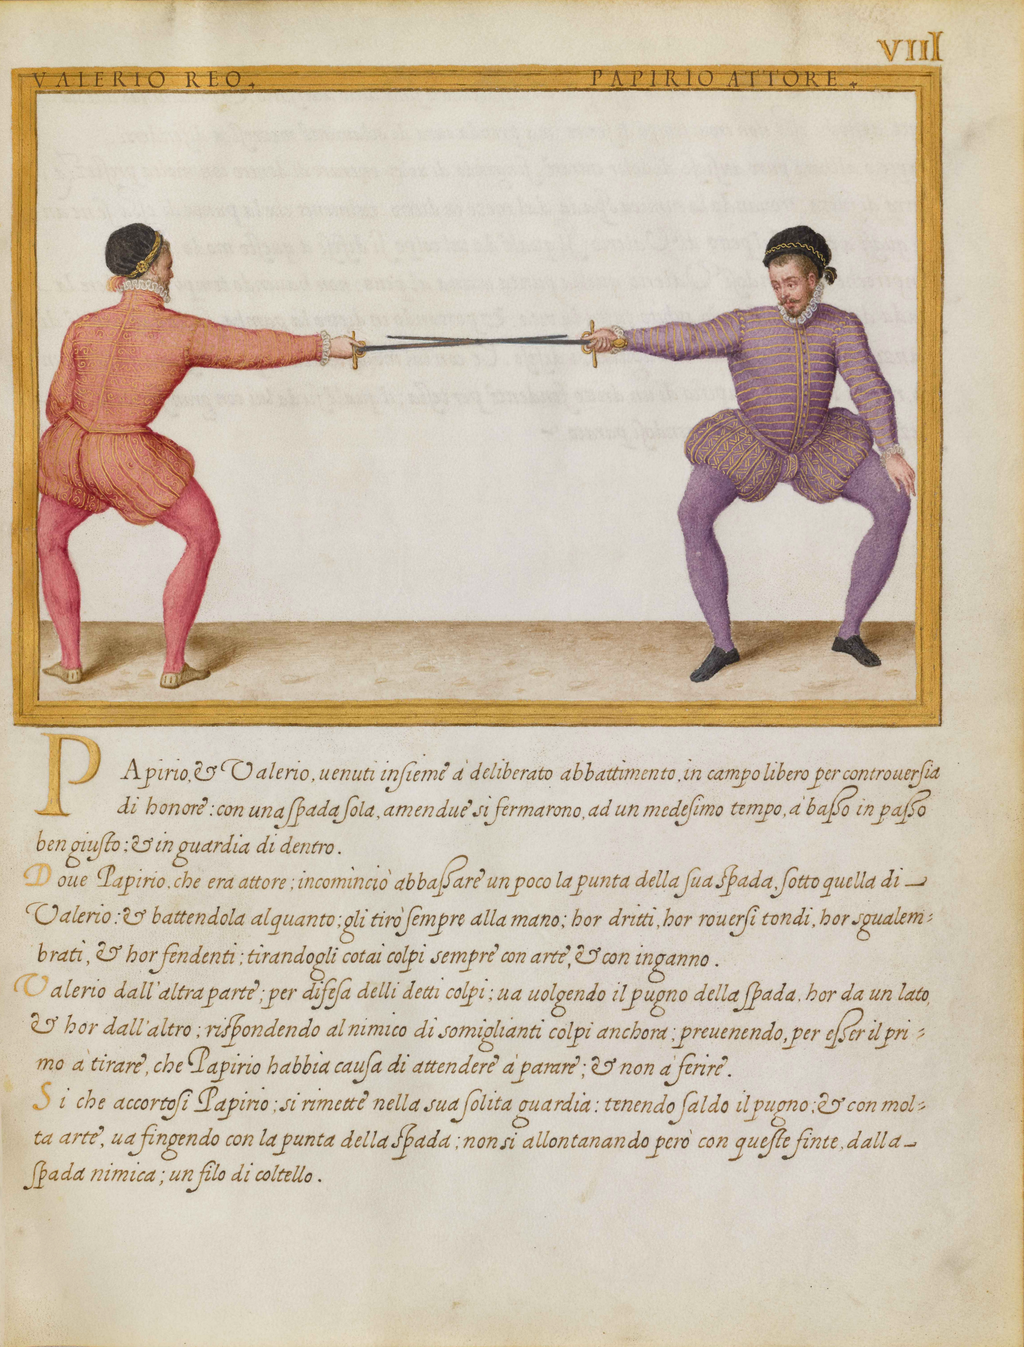 VIII
VALERIO REO. PAPIRIO ATTORE.
PApirio, & Valerio, uenuti insieme à deliberato abbattimento, in campo libero per controuersia
di honore: con una spada sola, amendue si fermarono, ad un medesimo tempo, à basso in passo
ben giusto; & in guardia di dentro.
Doue Papirio, che era attore; incominciò abbassare un poco la punta della sua spada, sotto quella di
Valerio: & battendola alquanto; gli tirò sempre alla mano; hor dritti, hor rouersi tondi, hor sgualem=
brati, & hor fendenti; tirandogli cotai colpi sempre con arte, & con inganno.
Valerio dall'altra parte; per difesa delli detti colpi; ua uolgendo il pugno della spada, hor da un lato,
& hor dall'altro; rispondendo al nimico di somiglianti colpi anchora; preuenendo, per esser il pri=
mo à tirare, che Papirio habbia causa di attendere à parare; & non à ferire.
Si che accortosi Papirio; si rimette nella sua solita guardia; tenendo saldo il pugno; & con mol=
ta arte, ua fingendo con la punta della spada; non si allontanando però con queste finte, dalla
spada nimica; un filo di coltello.